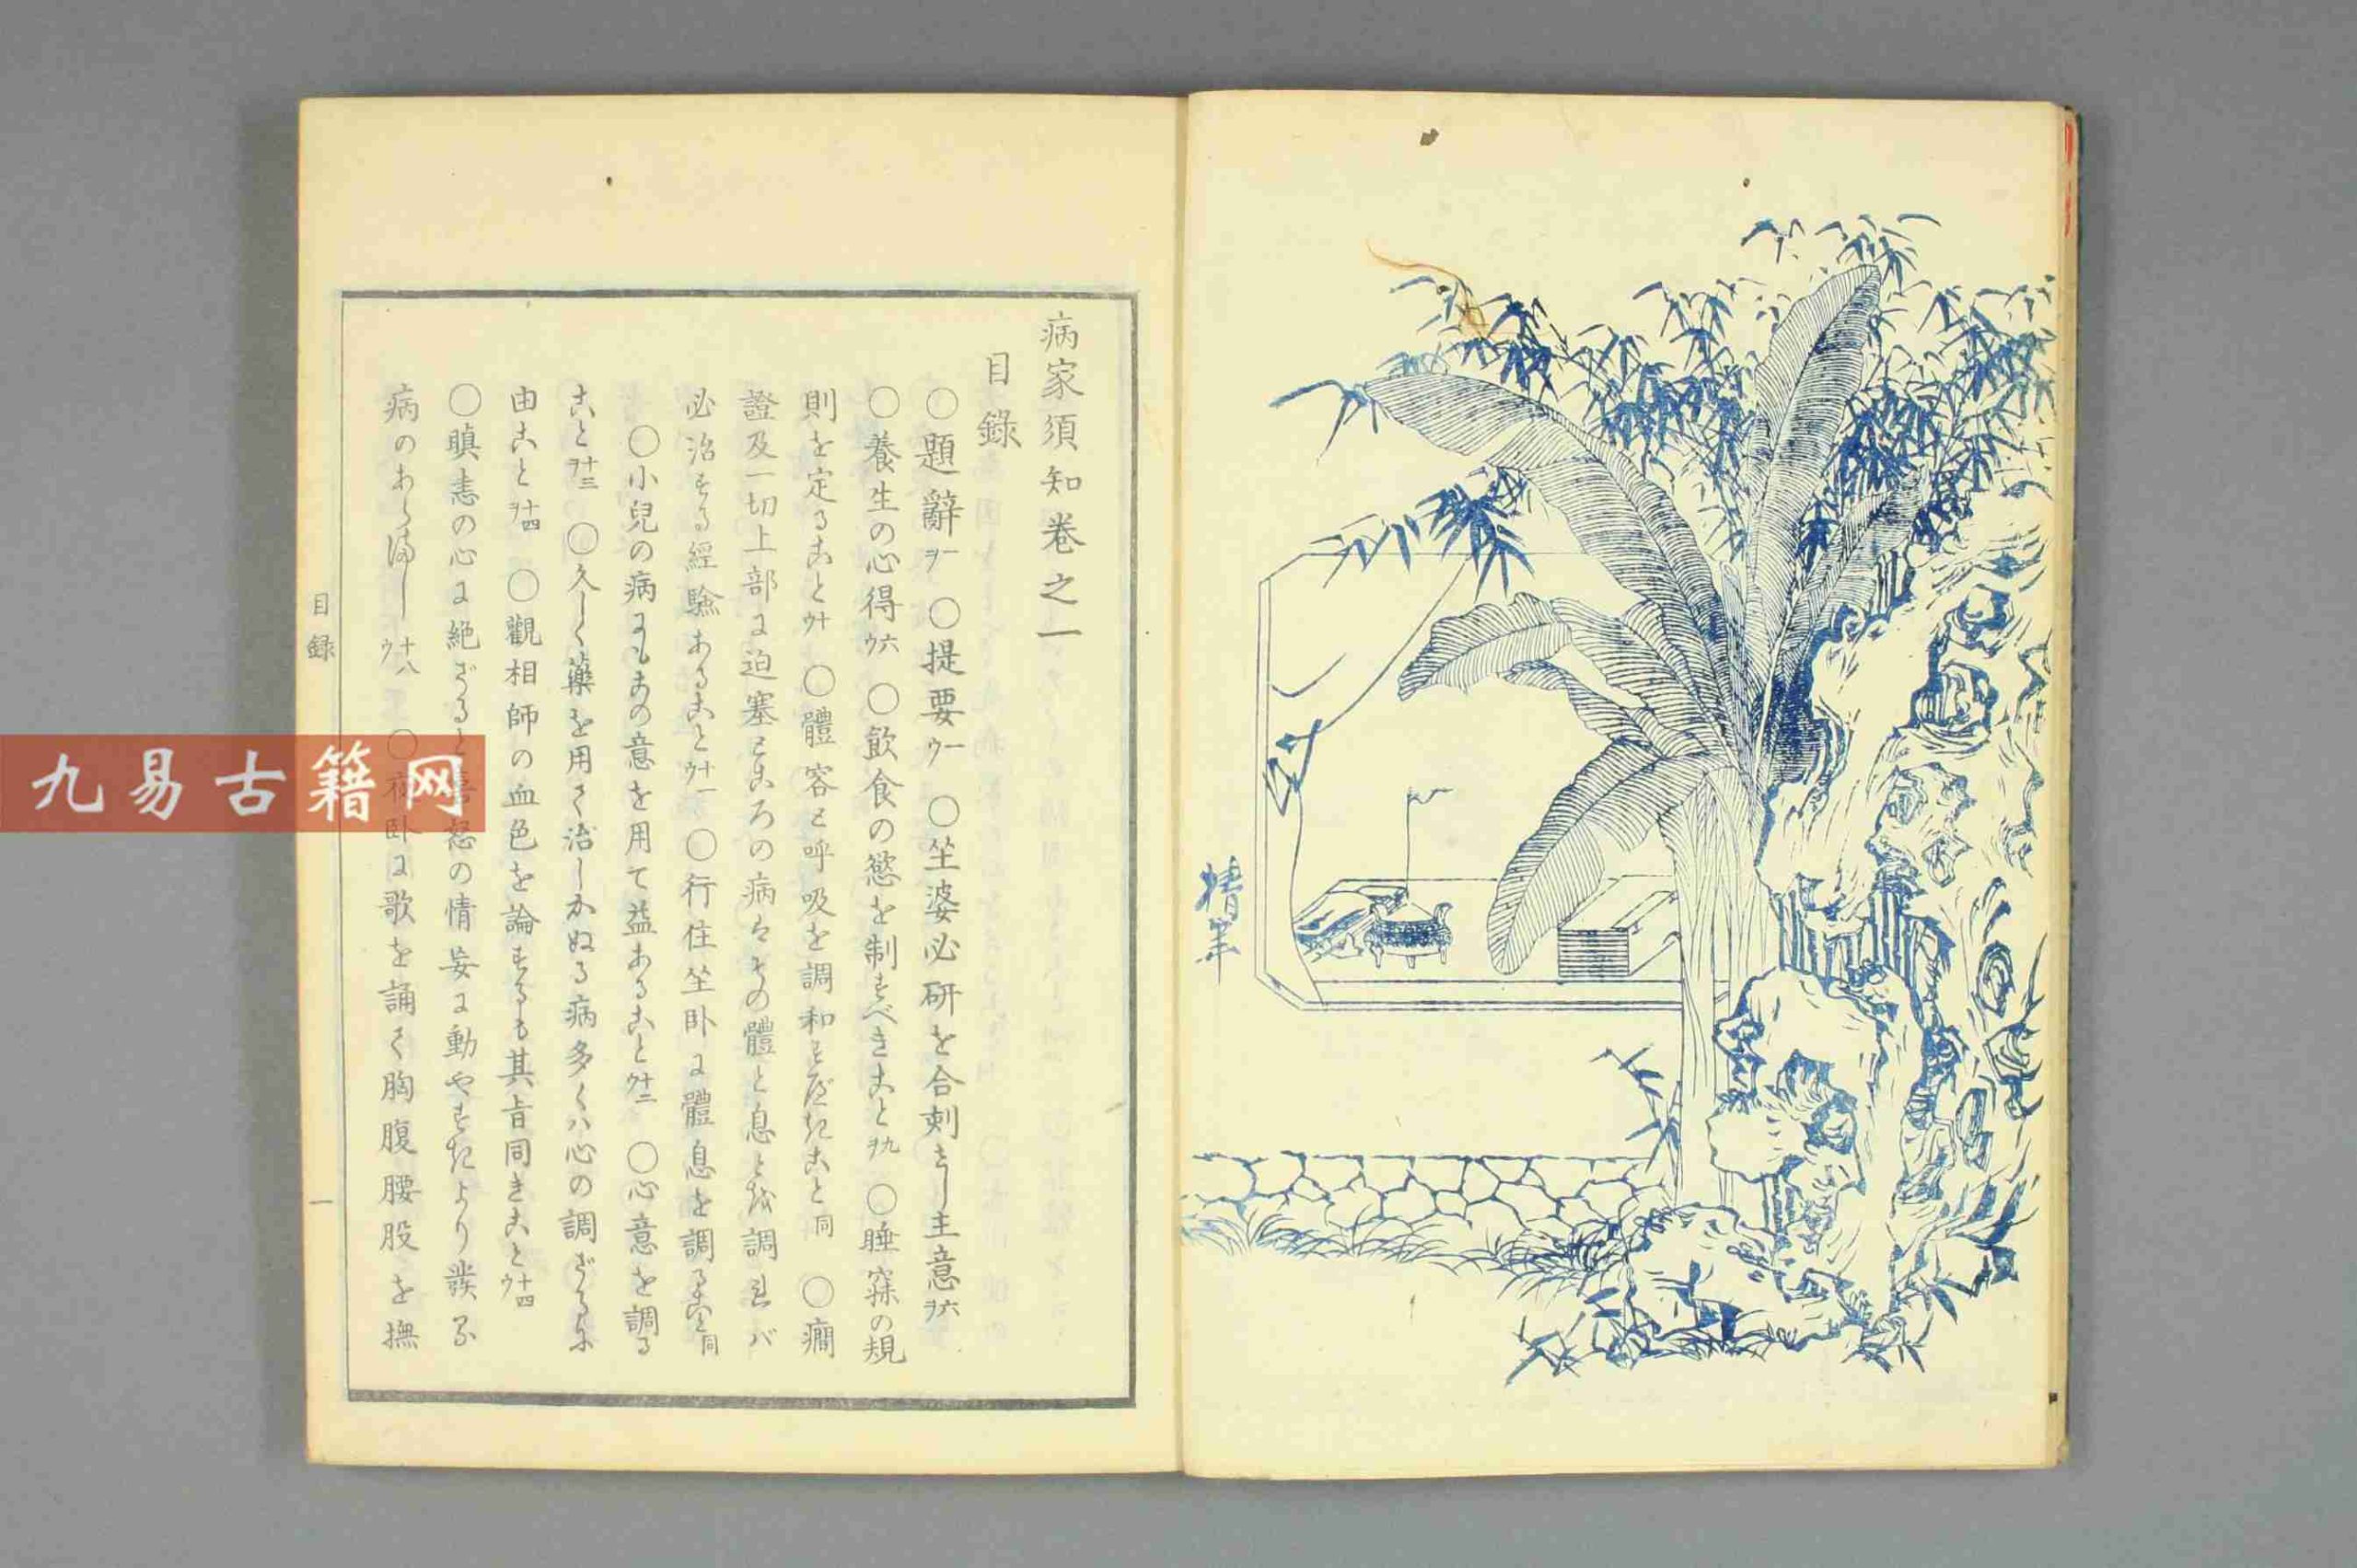 病家須知卷之一
目錄
○題辭一ヲ ○提要一ウ ○坐婆必研を合刻せし主意六ヲ
○養生の心得六ウ ○飲食の慾を制すべきこと九ヲ ○睡寐の規
則を定ること十ウ ○體容と呼吸を調和すべきこと同 ○癇
證及一切上部に迫塞ところの病はその體と息とを調れバ
必治する經驗あること十一ウ ○行住坐臥に體息を調ること同
○小兒の病にもこの意を用て益あること十二ウ ○心意を調る
こと十三ヲ ○久しく藥を用て治しかぬる病多くハ心の調ざるに
由こと十四ヲ ○觀相師の血色を論ずるも其旨同きこと十四ウ
○瞋恚の心に絶ざると喜怒の情妄に動やすきより發る
病のあらまし十八ウ ○夜臥に歌を誦て胸腹腰股を撫
目錄
一
九易古籍网